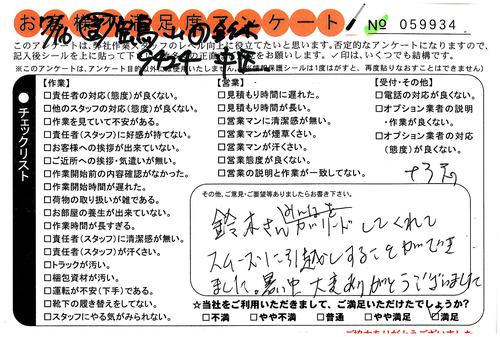 お客様満足度アンケート!
№ 059934
このアンケートは、弊社作業スタッフのレベル向上に役立てたいと思います。否定的なアンケートになりますので、
記入後シールを上に貼って下
をお願いします。✓印は、いくつでも結構です。
※このアンケートは、アンケート目的以外には使用いたしません。
護シールは1度がはすと、再度貼りなおすことはできません)
●チェックリスト
【作業】
□責任者の対応(態度)が良くない。
□他のスタッフの対応(態度)が良くない。
□作業を見ていて不安がある。
□責任者(スタッフ)に好感が持てない。
□お客様への挨拶が出来ていない。
□ご近所への挨拶・気遣いが無い。
□作業開始前の内容確認がなかった。
□作業開始時間が遅れた。
□荷物の取り扱いが雑である。
□お部屋の養生が出来ていない。
□作業時間が長すぎる。
□責任者(スタッフ)に清潔感が無い。
□責任者(スタッフ)が汗くさい。
□トラックが汚い。
□梱包資材が汚い。
□運転が不安(下手)である。
□靴下の履き替えをしてない。
□スタッフにやる気がみられない。
【営業】
□見積もり時間に遅れた。
□見積もり時間が長い。
□営業マンに清潔感が無い。
□営業マンが煙草くさい。
□営業マンが汗くさい。
□営業態度が良くない。
□営業の説明と作業が一致してない。
【受付・その他】
□電話の対応が良くない。
□オプション業者の説明
・作業が良くない。
□オプション業者の対応
(態度)が良くない。
その他、ご意見・ご要望等ありましたらお書き下さい。
鈴木さんがみんなをリードしてくれて
スムーズに引越しすることができ
ました。暑い中 大変ありがとうございました
☆当社をご利用いただきまして、ご満足いただけたでしょうか?
□不満 □やや不満 □普通 □やや満足 ☑満足
ご協力ありがとうございました